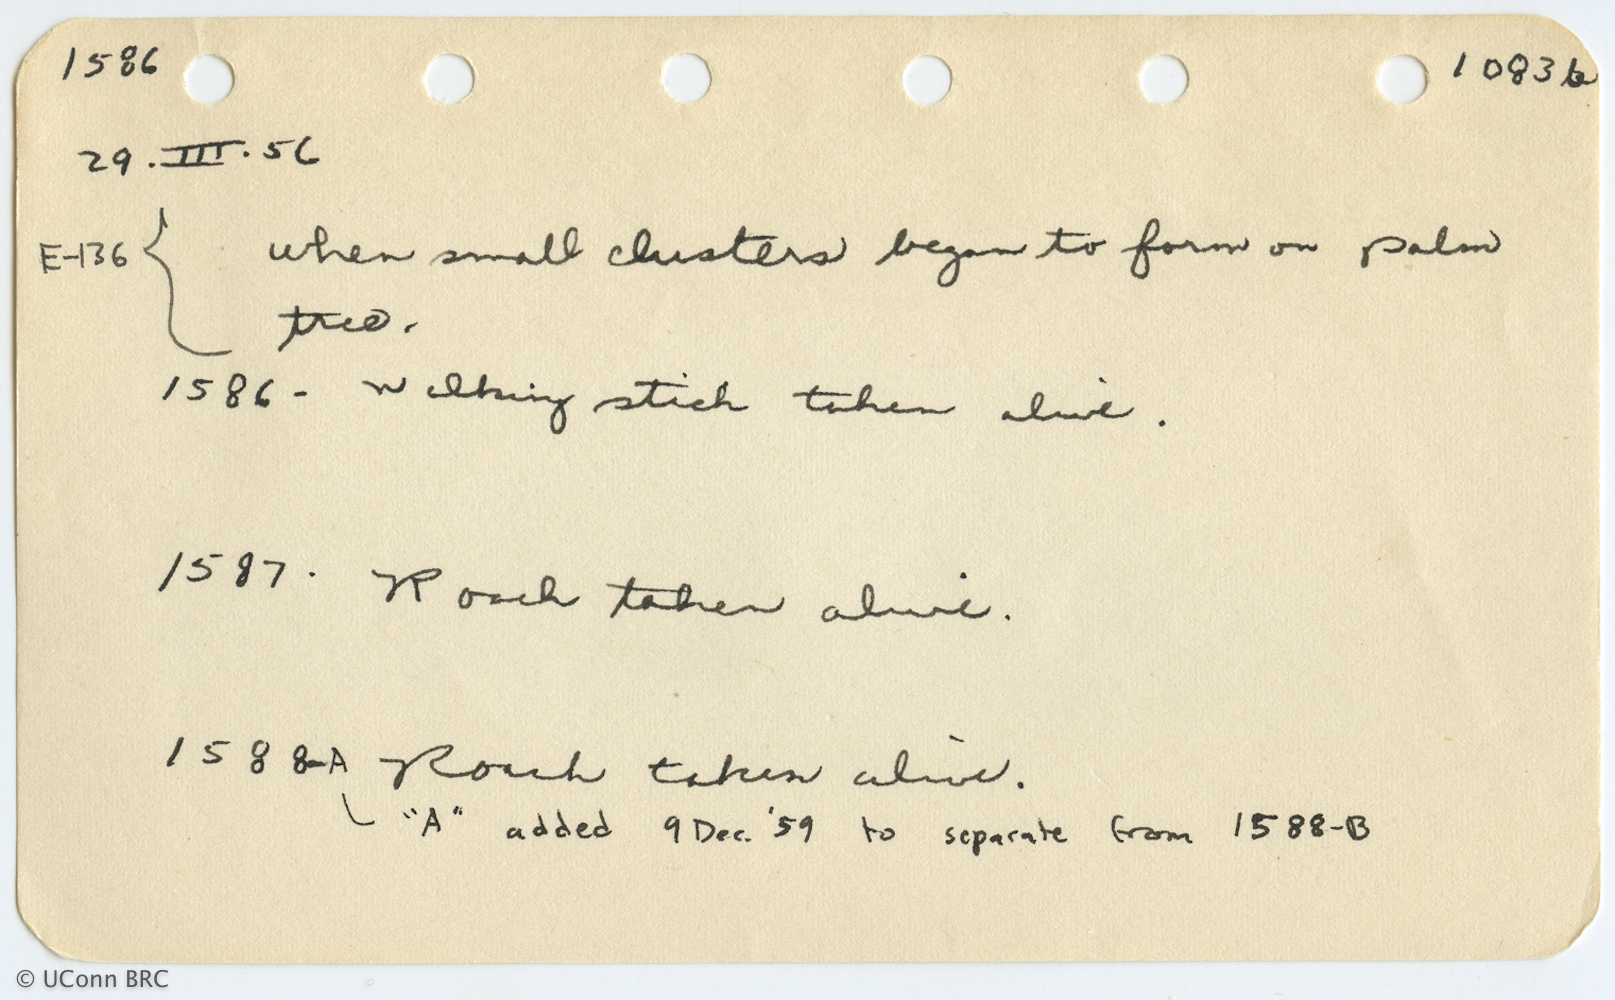 1586
1083b
29.III.56
E-136 { when small clusters began to form on palm
tree.
1586 - Walking stick taken alive.
1587. Roach taken alive.
1588-A Roach taken alive.
"A" added 9 Dec. '59 to separate from 1588-B
© UConn BRC